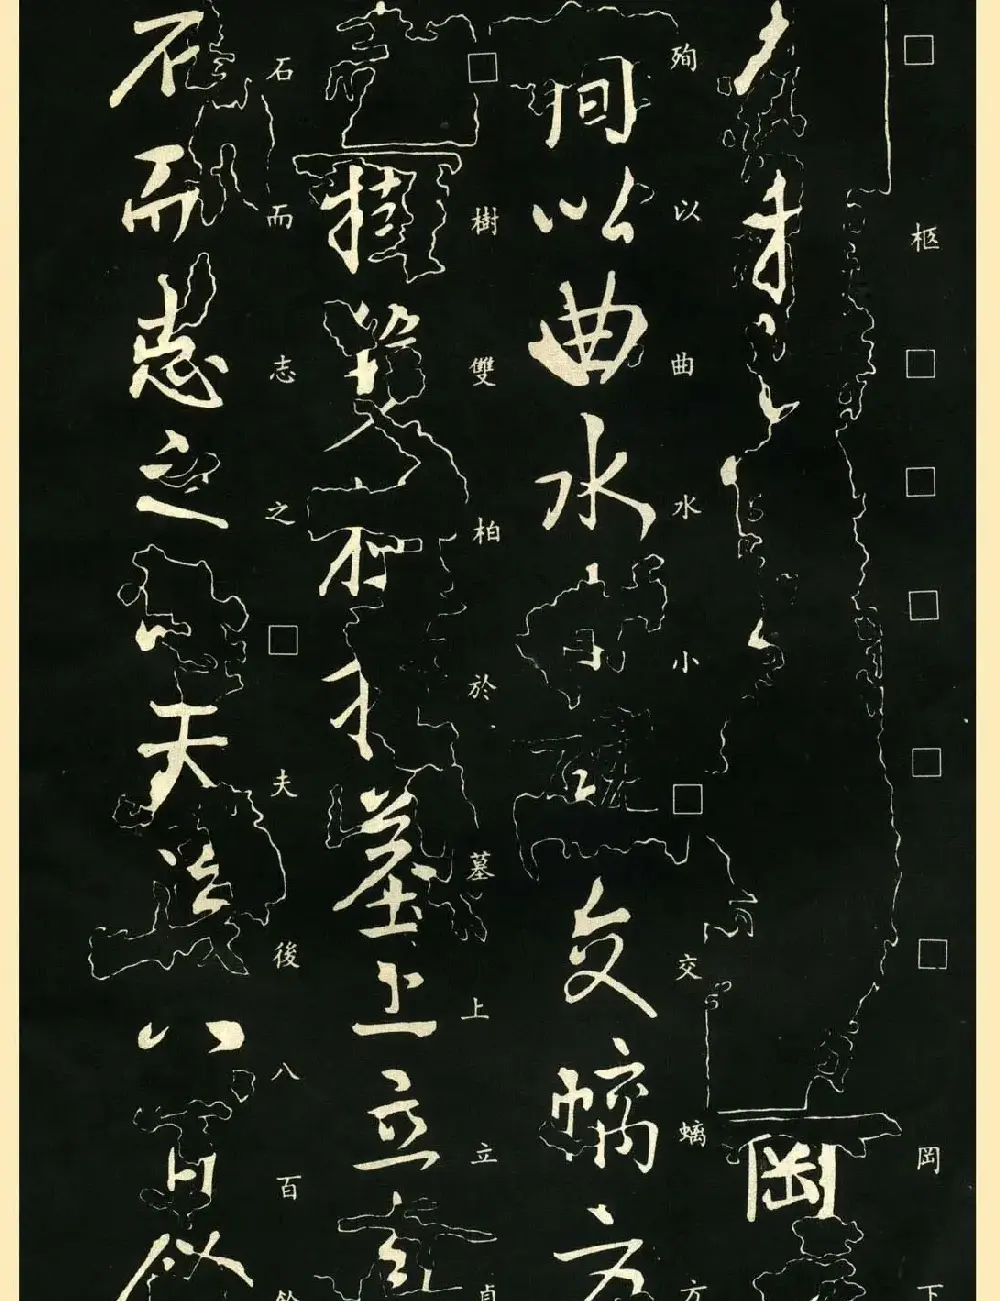 □柩□□□□□岡下
殉以曲水小□交螭方
□樹雙柏於墓上立貞
石而志之□夫後八百餘